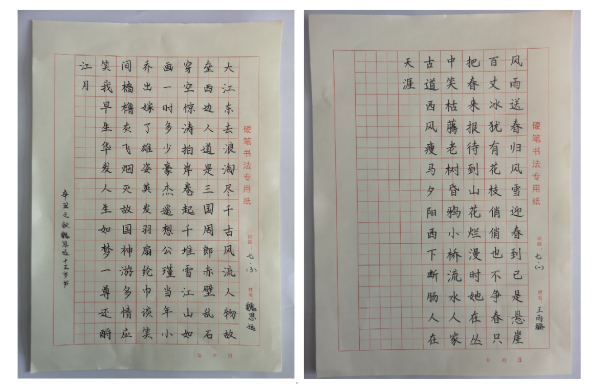 硬笔书法专用纸
班级 七.(3) 姓名
大江东去浪淘尽千古风流人物故
垒西边人道是三国周郎赤壁乱石
穿空惊涛拍岸卷起千堆雪江山如
画一时多少豪杰遥想公瑾当年小
乔出嫁了雄姿英发羽扇纶巾谈笑
间樯橹灰飞烟灭故国神游多情应
笑我早生华发人生如梦一尊还酹
江月
硬笔书法专用纸
班级 七.(一) 姓名 王雨
风雨送春归风雪迎春到已是悬崖
百丈冰犹有花枝俏俏也不争春只
把春来报待到山花烂漫时她在丛
中笑枯藤老树昏鸦小桥流水人家
古道西风瘦马夕阳西下断肠人在
天涯